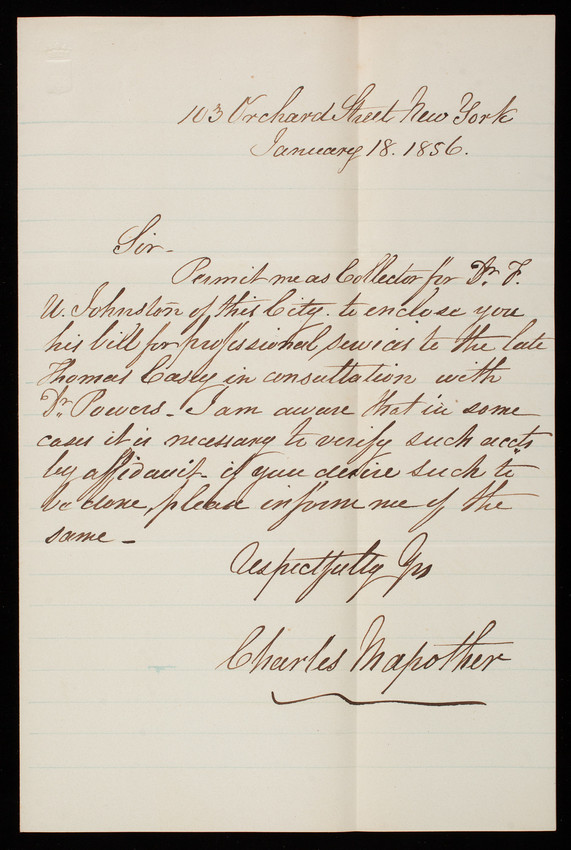 103 Orchard Street New York
January 18. 1856.
Sir -
Permit me as Collector for Dr. F.
U. Johnston of this City. to enclose you
his bill for professional services to the late
Thomas Casey in consultation with
Dr. Powers - I am aware that in some
cases it is necessary to verify such accts
by affidavit - if you desire such to
be done, please inform me of the
same -
Respectfully Yrs
Charles Mapother